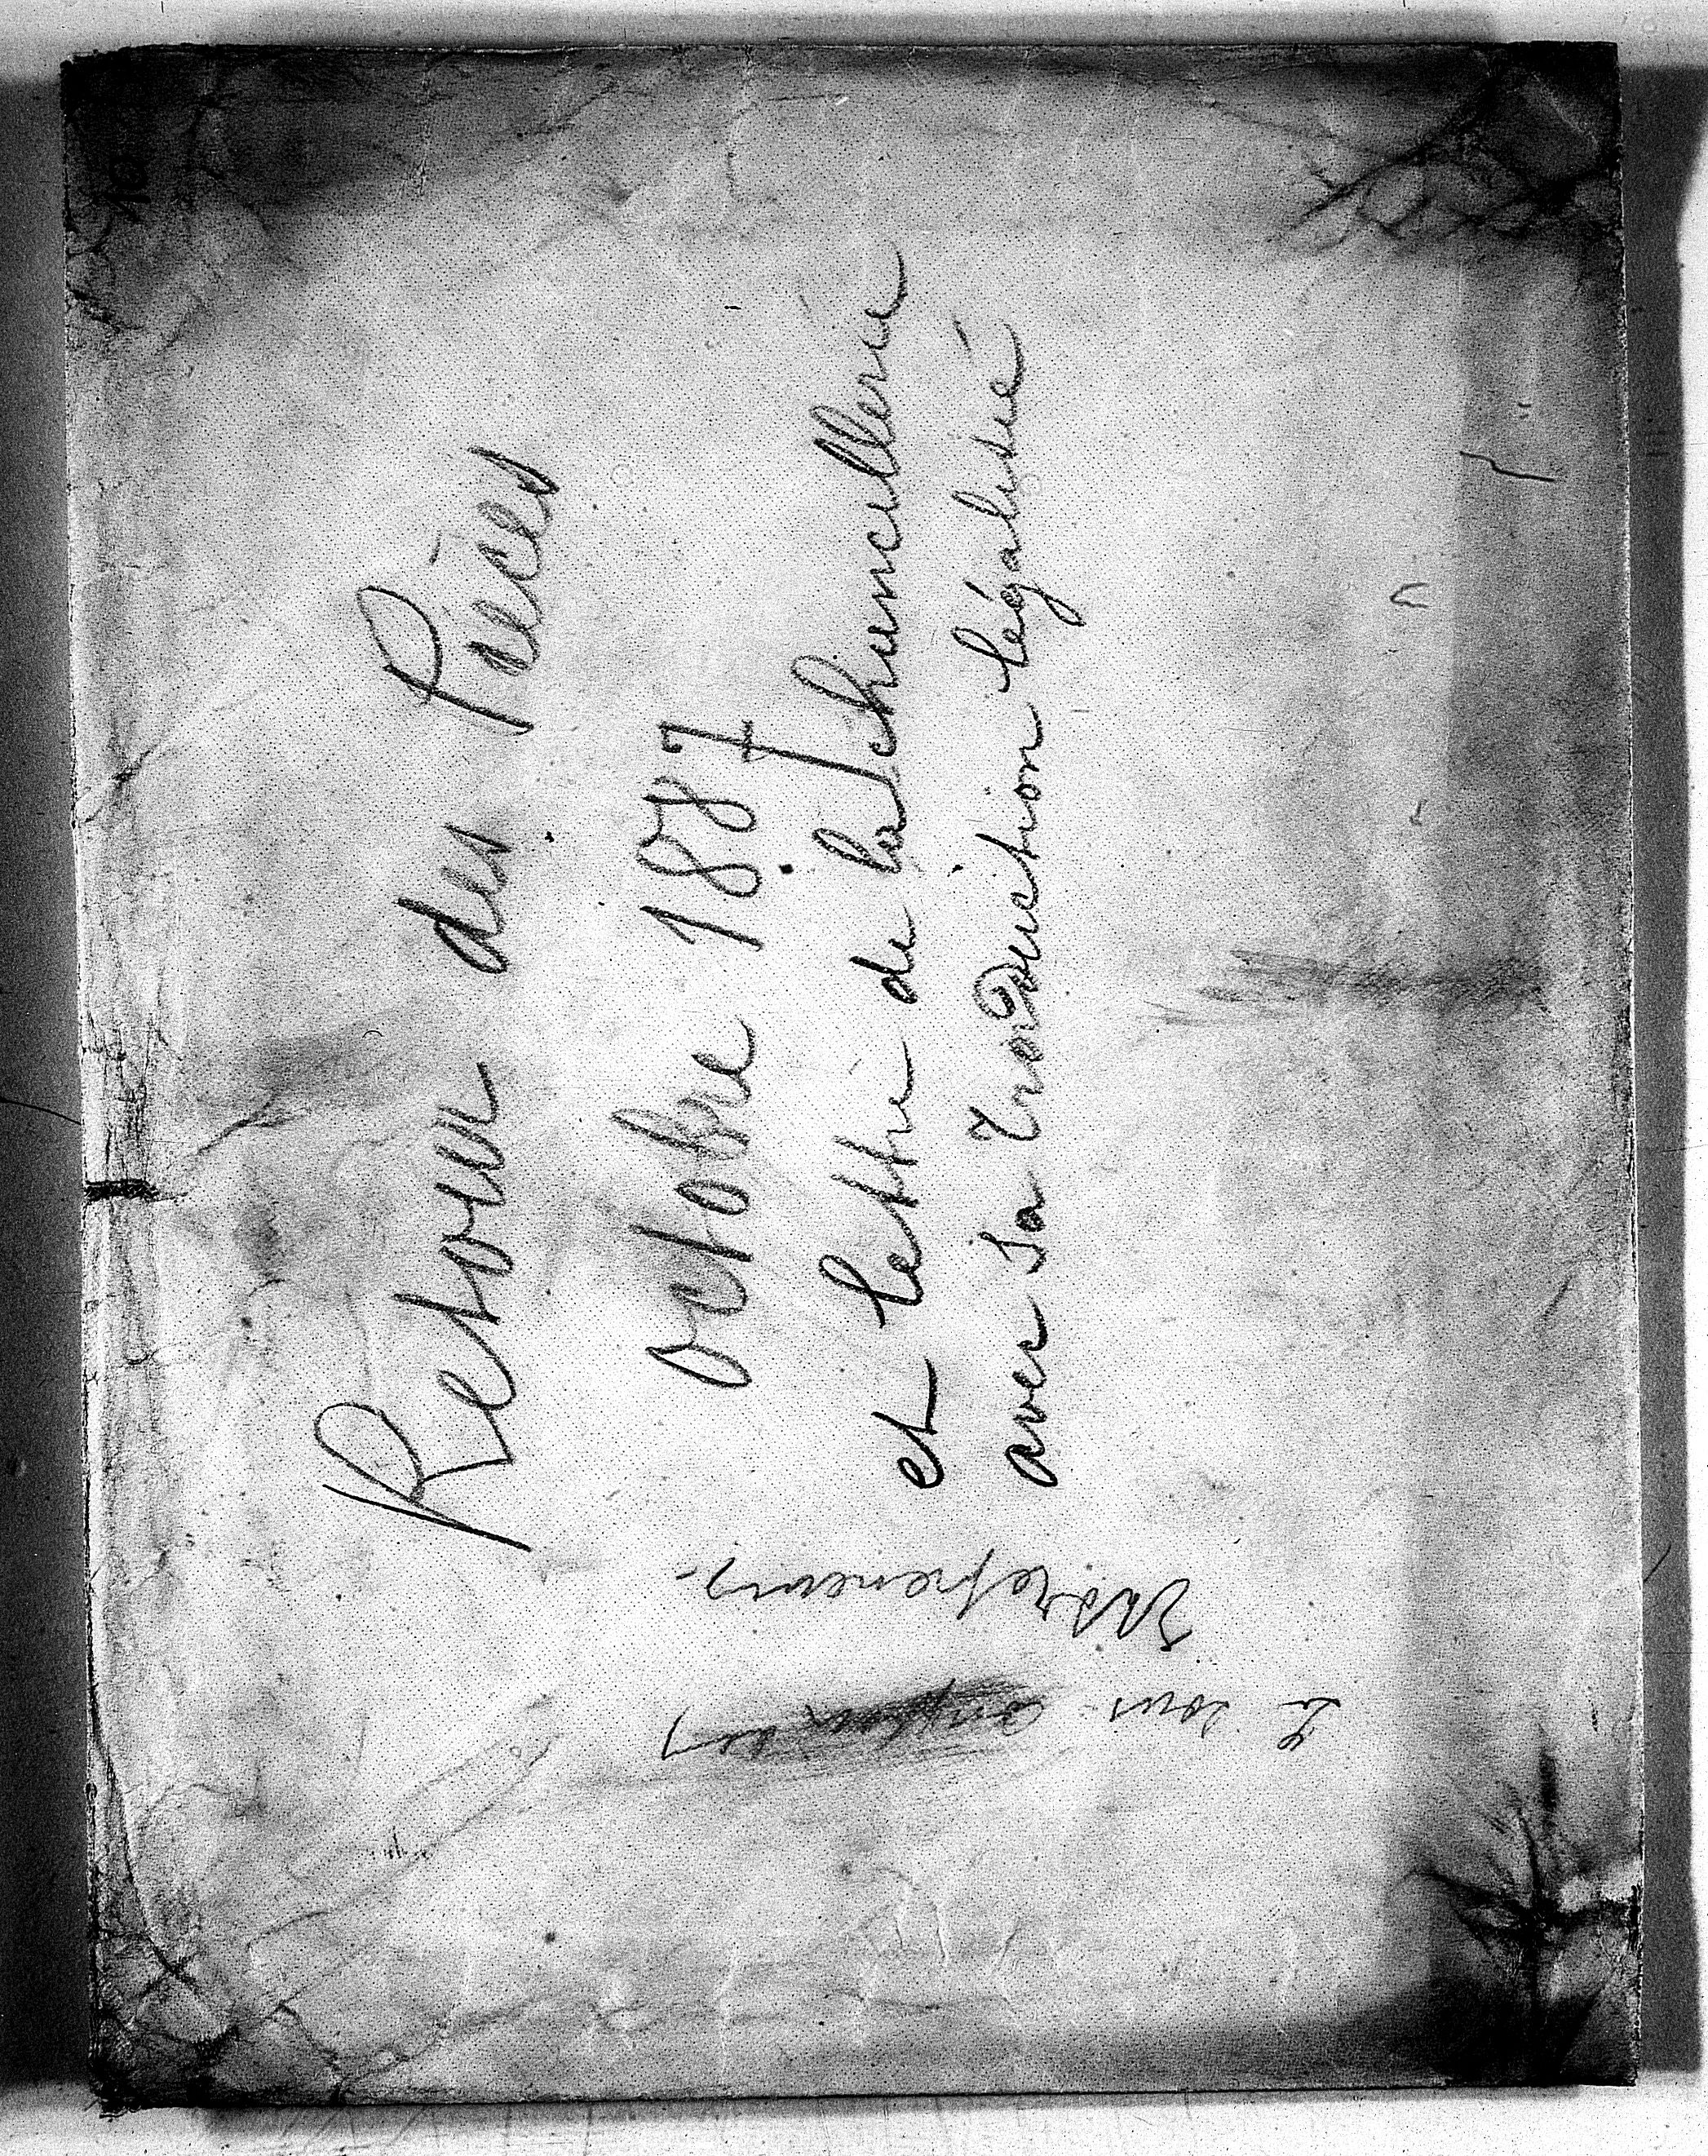 Retour des Pièces
octobre 1887
et lettre de la chancellerie
avec sa Traduction légalisée
Le sous-